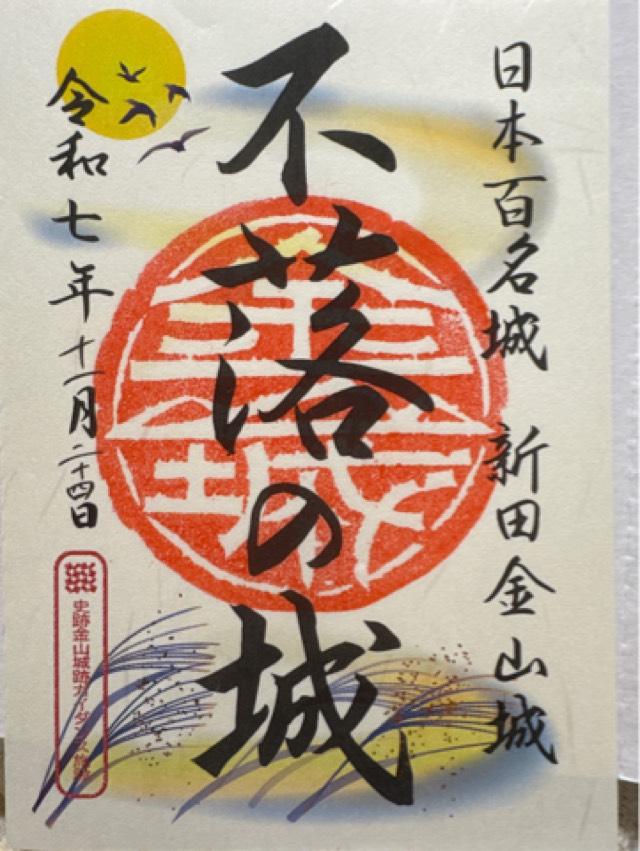 日本百名城 新田金山城
不落の城
金山城
令和七年十一月二十四日
史跡金山城跡ガイダンス施設